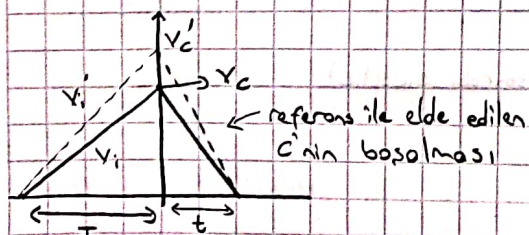 Vc'
Vc
Vi'
Vi
referans ile elde edilen
C'nin boşalması
T
t